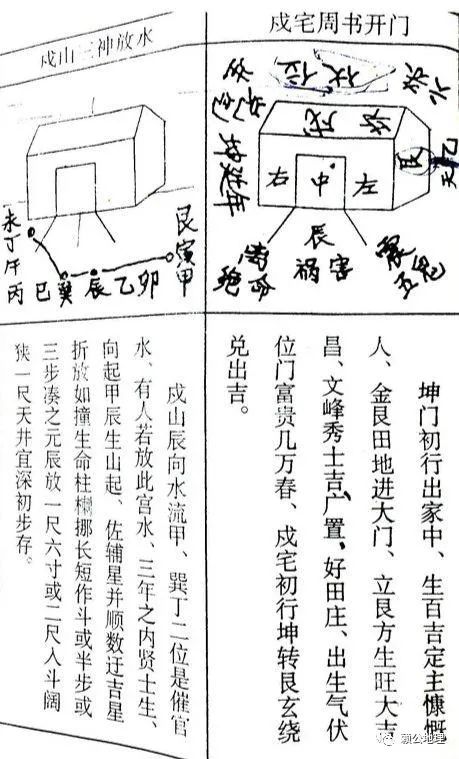 戍宅周书开门
六煞
伏位
天乙
右
中
左
辰
祸害
五鬼
坤门初行出家中、生百吉定主慷慨
人、金艮田地进大门、立艮方生旺大吉
昌、文峰秀士吉、广置，好田庄、出生气伏
位门富贵几万春、戍宅初行坤转艮玄绕
兑出吉。
戍山三神放水
未丁午丙
巳巽辰乙卯
艮寅甲
戍山辰向水流甲、巽丁二位是催官
水、有人若放此宫水、三年之内贤士生、
向起甲辰生山起、佐辅星并顺数迂吉星
折放如撞生命柱挪长短作斗或半步或
三步凑之元辰放一尺六寸或二尺入斗阔
狭一尺天井宜深初步存。
赖公地理